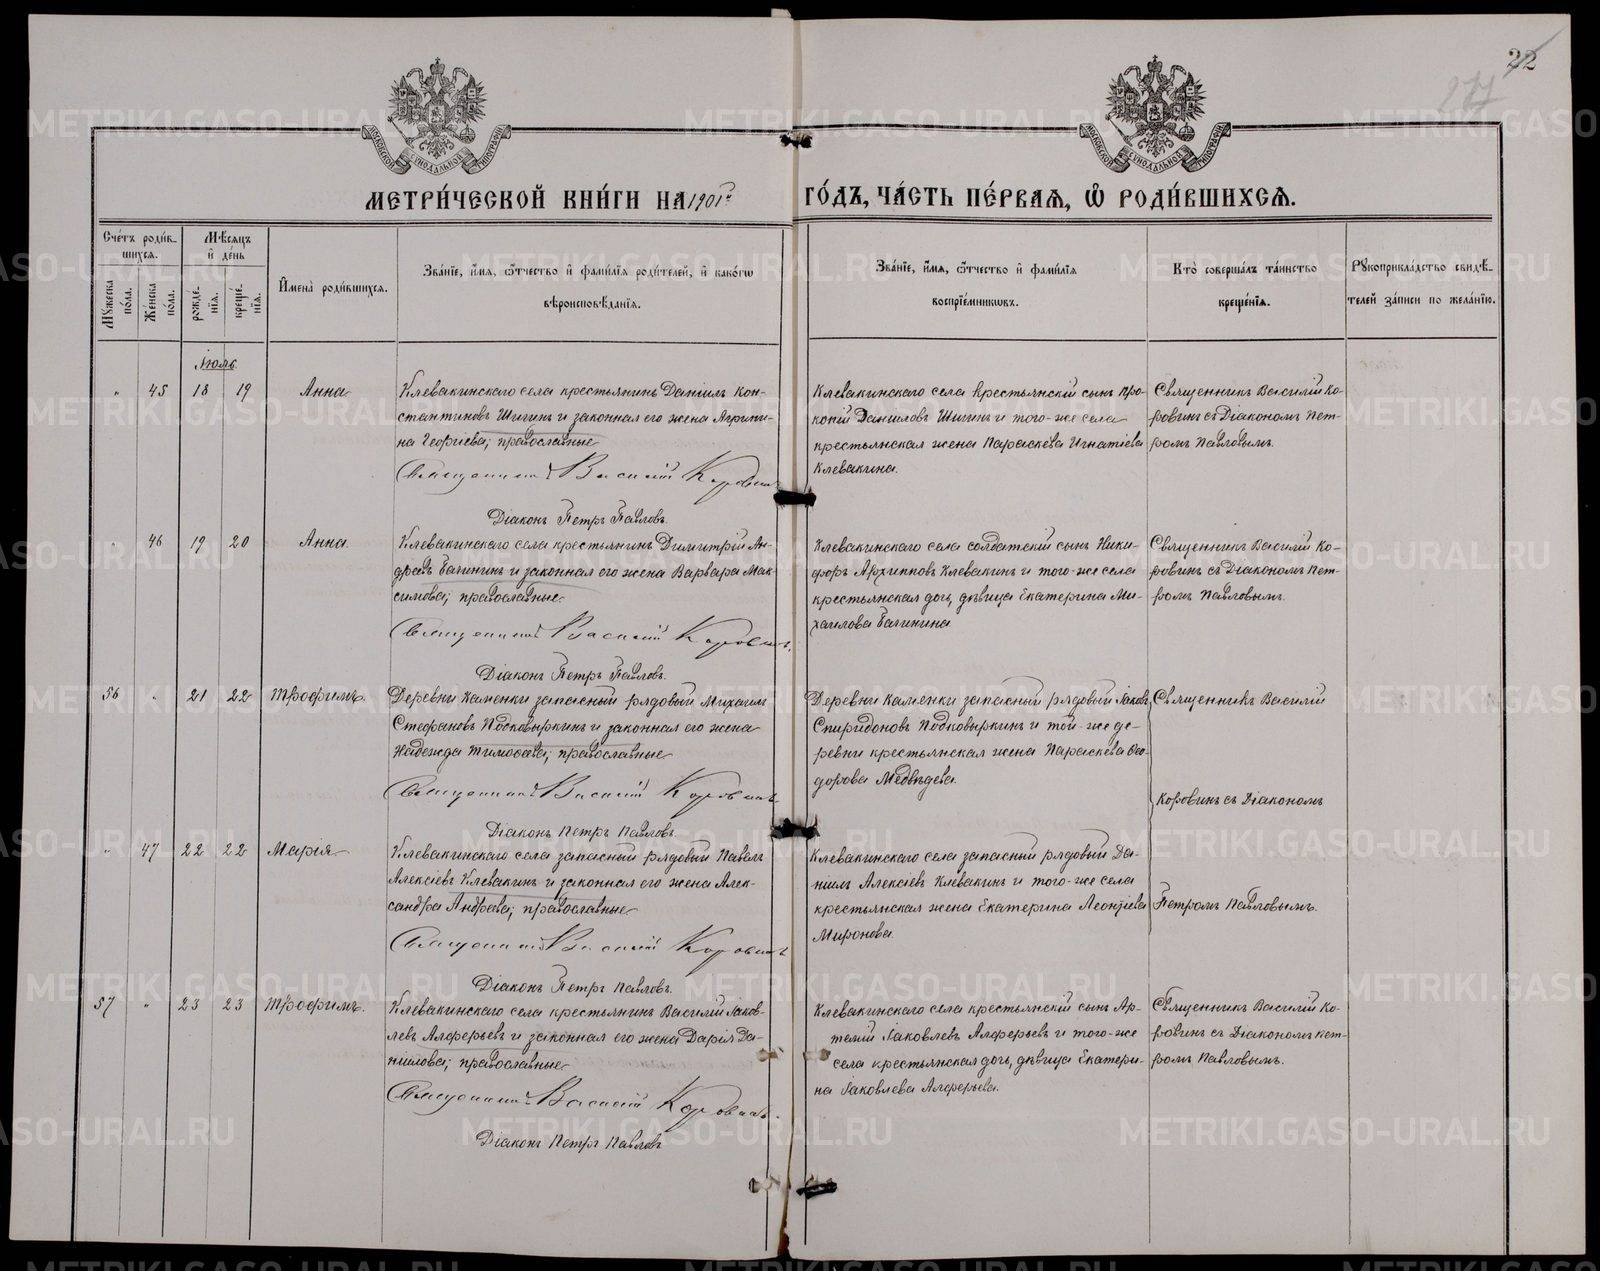 22
277
МОСКОВСКОЙ СѴНОДАЛЬНОЙ ТИПОГРАФІИ
МОСКОВСКОЙ СѴНОДАЛЬНОЙ ТИПОГРАФІИ
МЕТРИ́ЧЕСКОЙ КНИ́ГИ НА 1901й ГО́ДЪ, ЧА́СТЬ ПЕ́РВАѦ, Ѿ РОДИ́ВШИХСѦ.
Сче́тъ роди́в-
шихся.
Мꙋ́жеска по́ла.
Же́нска по́ла.
Мѣ́сяцъ
и҆ де́нь
рожде́-
нія.
креще́-
нія.
И҆мена̀ роди́вшихся.
Зва́ніе, и҆́мя, ѻ҆́тчество и҆ фами́лія роди́телей, и҆ како́гѡ
вѣроисповѣ́данія.
Зва́ніе, и҆́мя, ѻ҆́тчество и҆ фами́лія
воспріе́мникѡвъ.
Кто̀ соверша́лъ та́инство
креще́нія.
Рꙋкоприкла́дство свидѣ́-
телей за́писи по жела́нію.
Іюль
„ 45 18 19 Анна
Клевакинскаго села крестьянинъ Даніилъ Кон-
стантиновъ Шигинъ и законная его жена Агрипи-
на Георгіева; православные
Священникъ Василій Коровинъ
Діаконъ Петръ Павловъ.
Клевакинскаго села крестьянскій сынъ Про-
копій Даниловъ Шигинъ и того-же села
крестьянская жена Параскева Игнатіева
Клевакина.
Священникъ Василій Ко-
ровинъ съ Діакономъ Пет-
ромъ Павловымъ.
„ 46 19 20 Анна
Клевакинскаго села крестьянинъ Димитрій Ан-
древъ Бачининъ и законная его жена Варвара Мак-
симова; православные
Священникъ Василій Коровинъ.
Діаконъ Петръ Павловъ.
Клевакинскаго села солдатскій сынъ Ники-
форъ Архипповъ Клевакинъ и того-же села
крестьянская дочь, дѣвица Екатерина Ми-
хаилова Бачинина
Священникъ Василій Ко-
ровинъ съ Діакономъ Пет-
ромъ Павловымъ.
56 „ 21 22 Трофимъ.
Деревни Каменки запасный рядовый Михаилъ
Стефановъ Подковыркинъ и законная его жена
Надежда Тимофеева; православные
Священникъ Василій Коровинъ
Діаконъ Петръ Павловъ
Деревни Каменки запасный рядовый Іаковъ
Спиридоновъ Подковыркинъ и той-же де-
ревни крестьянская жена Параскева Ѳео-
дорова Медвѣдева.
Священникъ Василій
Коровинъ съ Діакономъ
Петромъ Павловымъ.
„ 47 22 22 Марія
Клевакинскаго села запасный рядовый Павелъ
Алексіевъ Клевакинъ и законная его жена Алек-
сандра Андреева; православные
Священникъ Василій Коровинъ
Діаконъ Петръ Павловъ.
Клевакинскаго села запасный рядовый Да-
ніилъ Алексіевъ Клевакинъ и того-же села
крестьянская жена Екатерина Леонтіева
Миронова.
57 „ 23 23 Трофимъ.
Клевакинскаго села крестьянинъ Василій Іаков-
левъ Алферьевъ и законная его жена Дарія Да-
ніилова; православные
Священникъ Василій Коровинъ.
Діаконъ Петръ Павловъ
Клевакинскаго села крестьянскій сынъ Ар-
темій Іаковлевъ Алферьевъ и того-же
села крестьянская дочь, дѣвица Екатери-
на Іаковлева Алферьева.
Священникъ Василій Ко-
ровинъ съ Діакономъ Пет-
ромъ Павловымъ.
METRIKI.GASO-URAL.RU